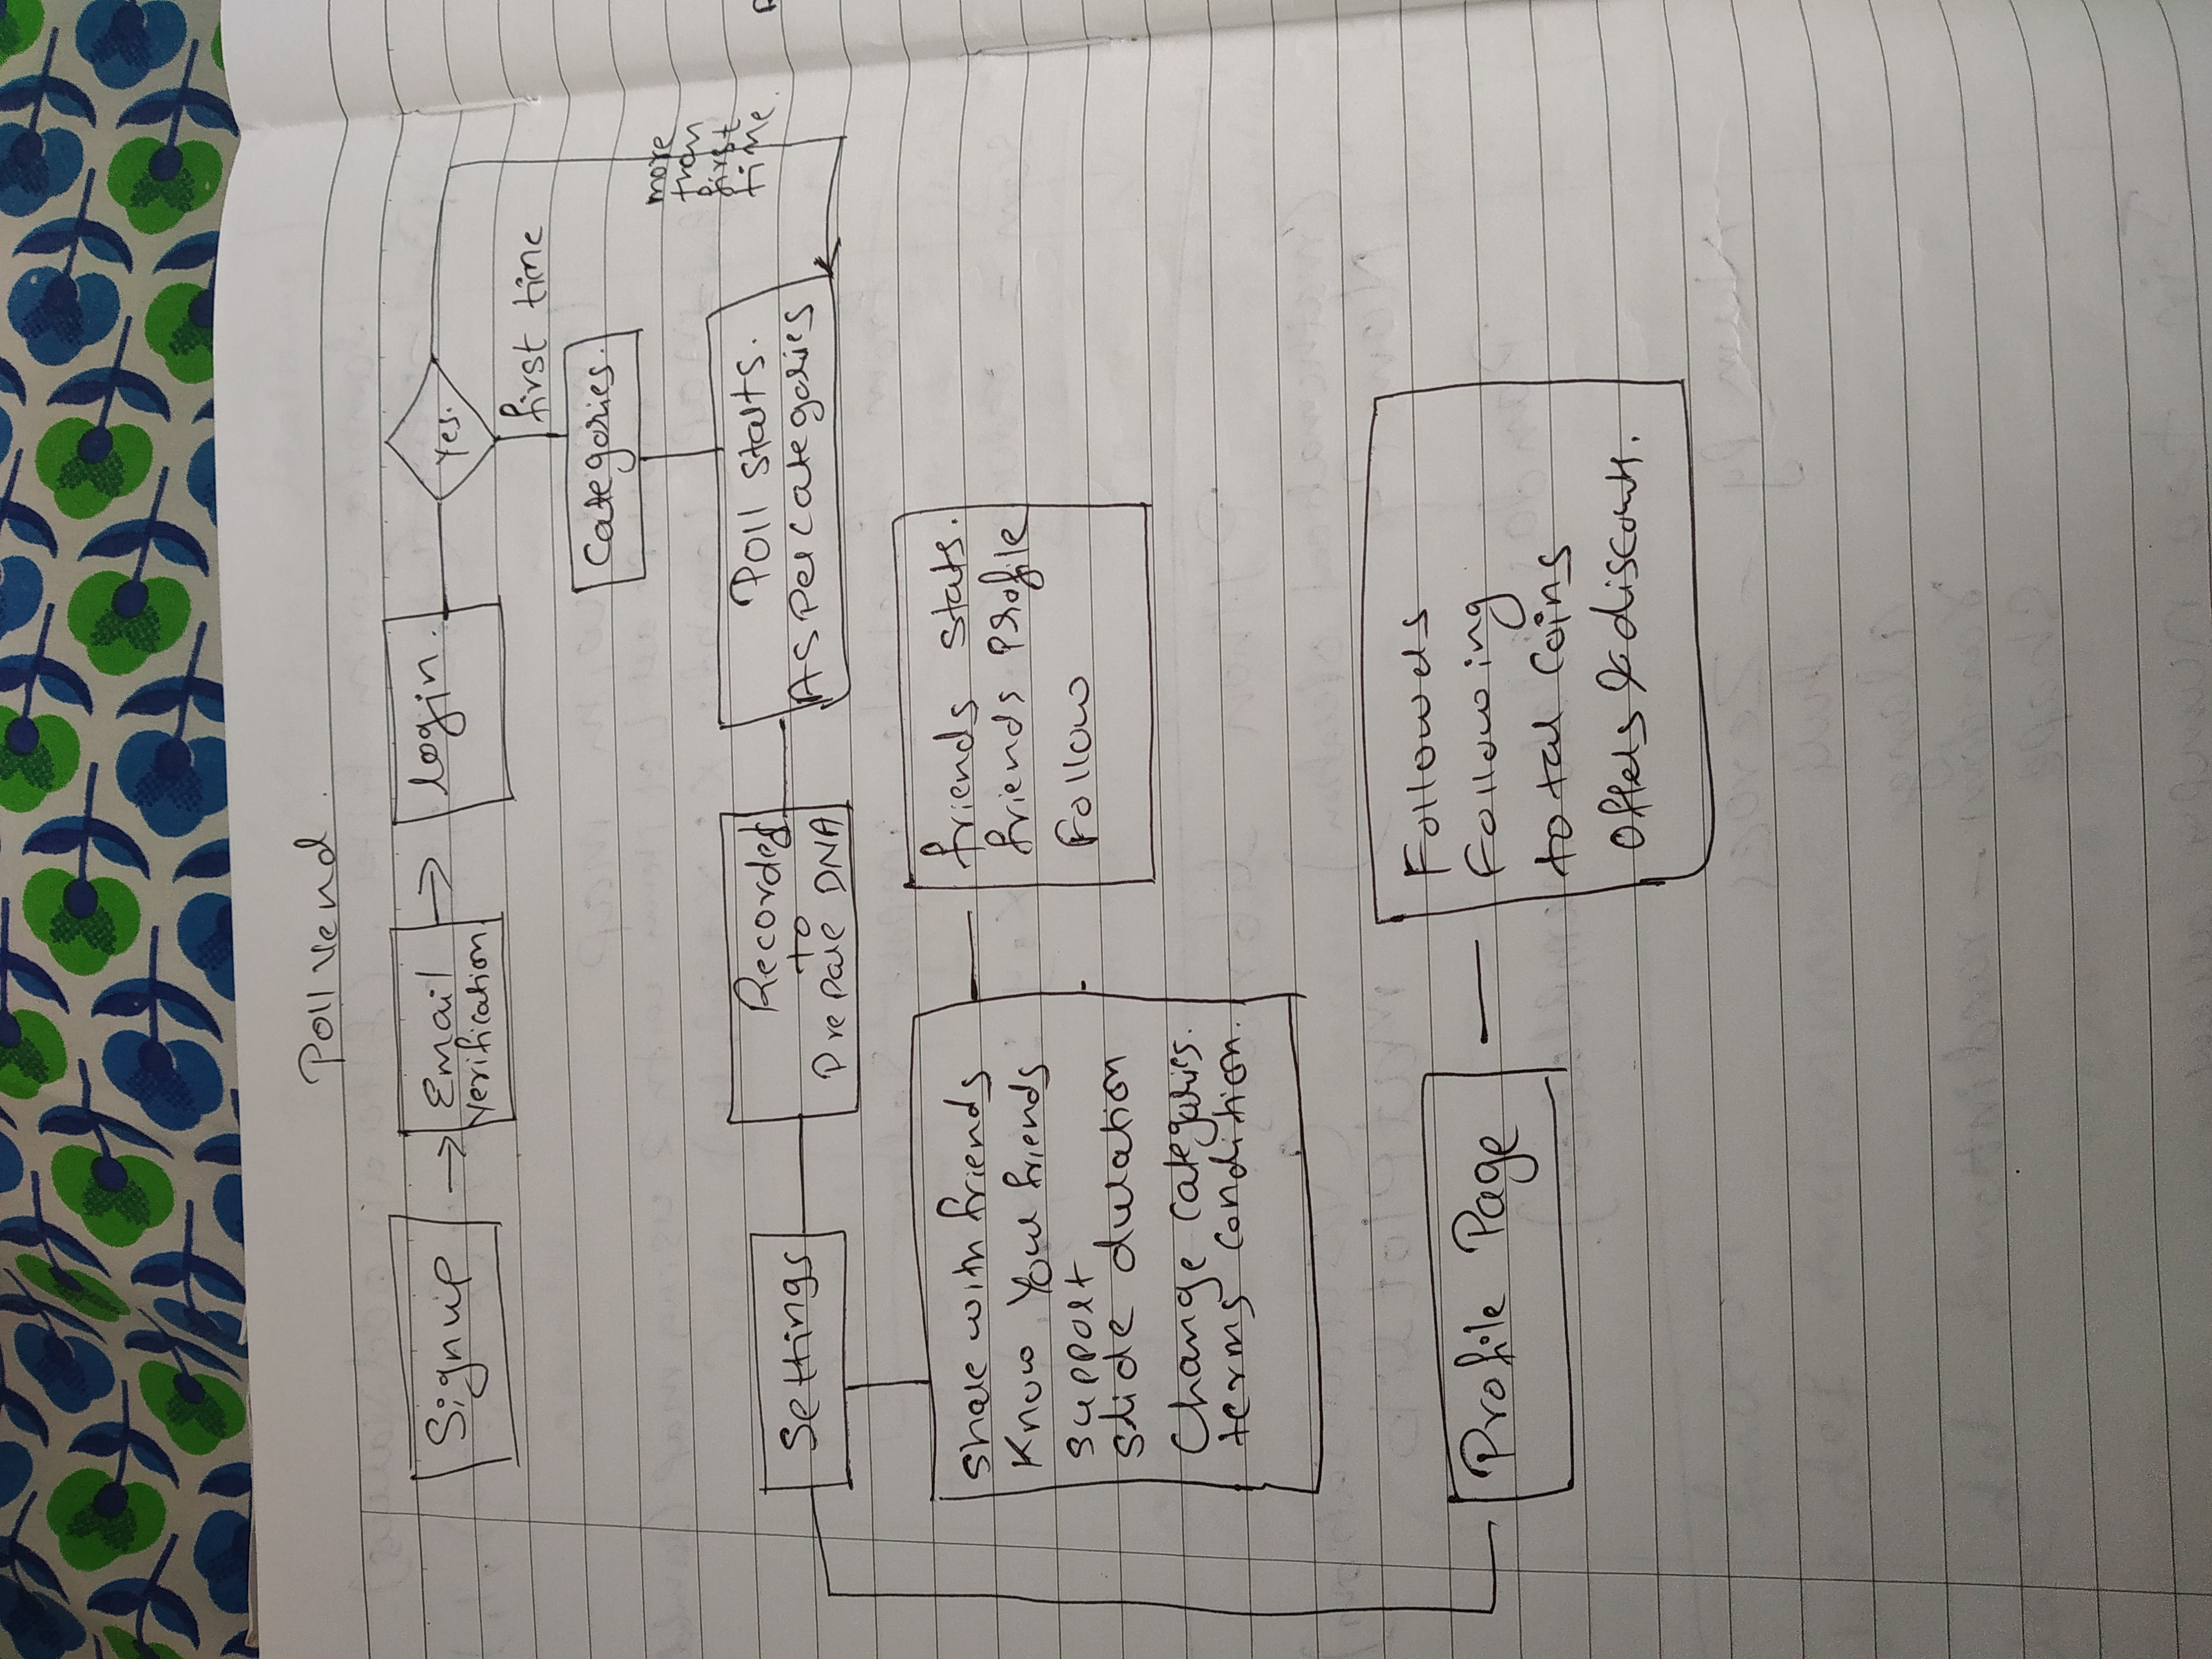 Poll vend.
Signup
Email
verification
login.
yes.
first time
Categories.
more
than
first
time.
Settings
Recorded
to
Prepare DNA
Poll starts.
As per categories
Share with friends
Know your friends
support
slide duration
Change categories.
terms condition.
friends stats.
friends profile
Follow
Profile Page
Followers
Following
total coins
Offers & discount.